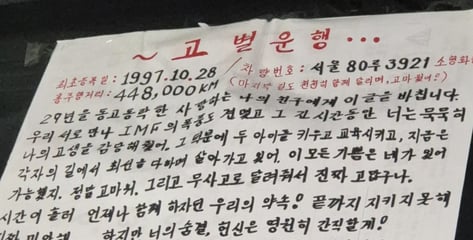 ~ 고별운행 ...
최초등록일 : 1997.10.28 / 차량번호 : 서울 80루 3921 소형화
총주행거리 : 448,000KM (마지막 길도 천천히 함께 달리며, 고마웠어?)
29년을 동고동락한 사랑하는 나의 친구에게 이 글을 바칩니다.
우리 서로 만나 IMF의 폭풍도 견뎠고 그 긴 시간동안 너는 묵묵히
나의 고생을 감당해줬어. 그 덕분에 두 아이를 키우고 교육시키고, 지금은
각자의 길에서 최선을 다하며 살아가고 있어, 이 모든 기쁨은 네가 있어
가능했지, 정말 고마워, 그리고 무사고로 달려줘서 진짜 고맙구나.
시간이 흘러 언제나 함께 하자던 우리의 약속! 끝까지 지키지 못해
미안해 하지만 너의 숨결, 헌신은 영원히 간직할게!